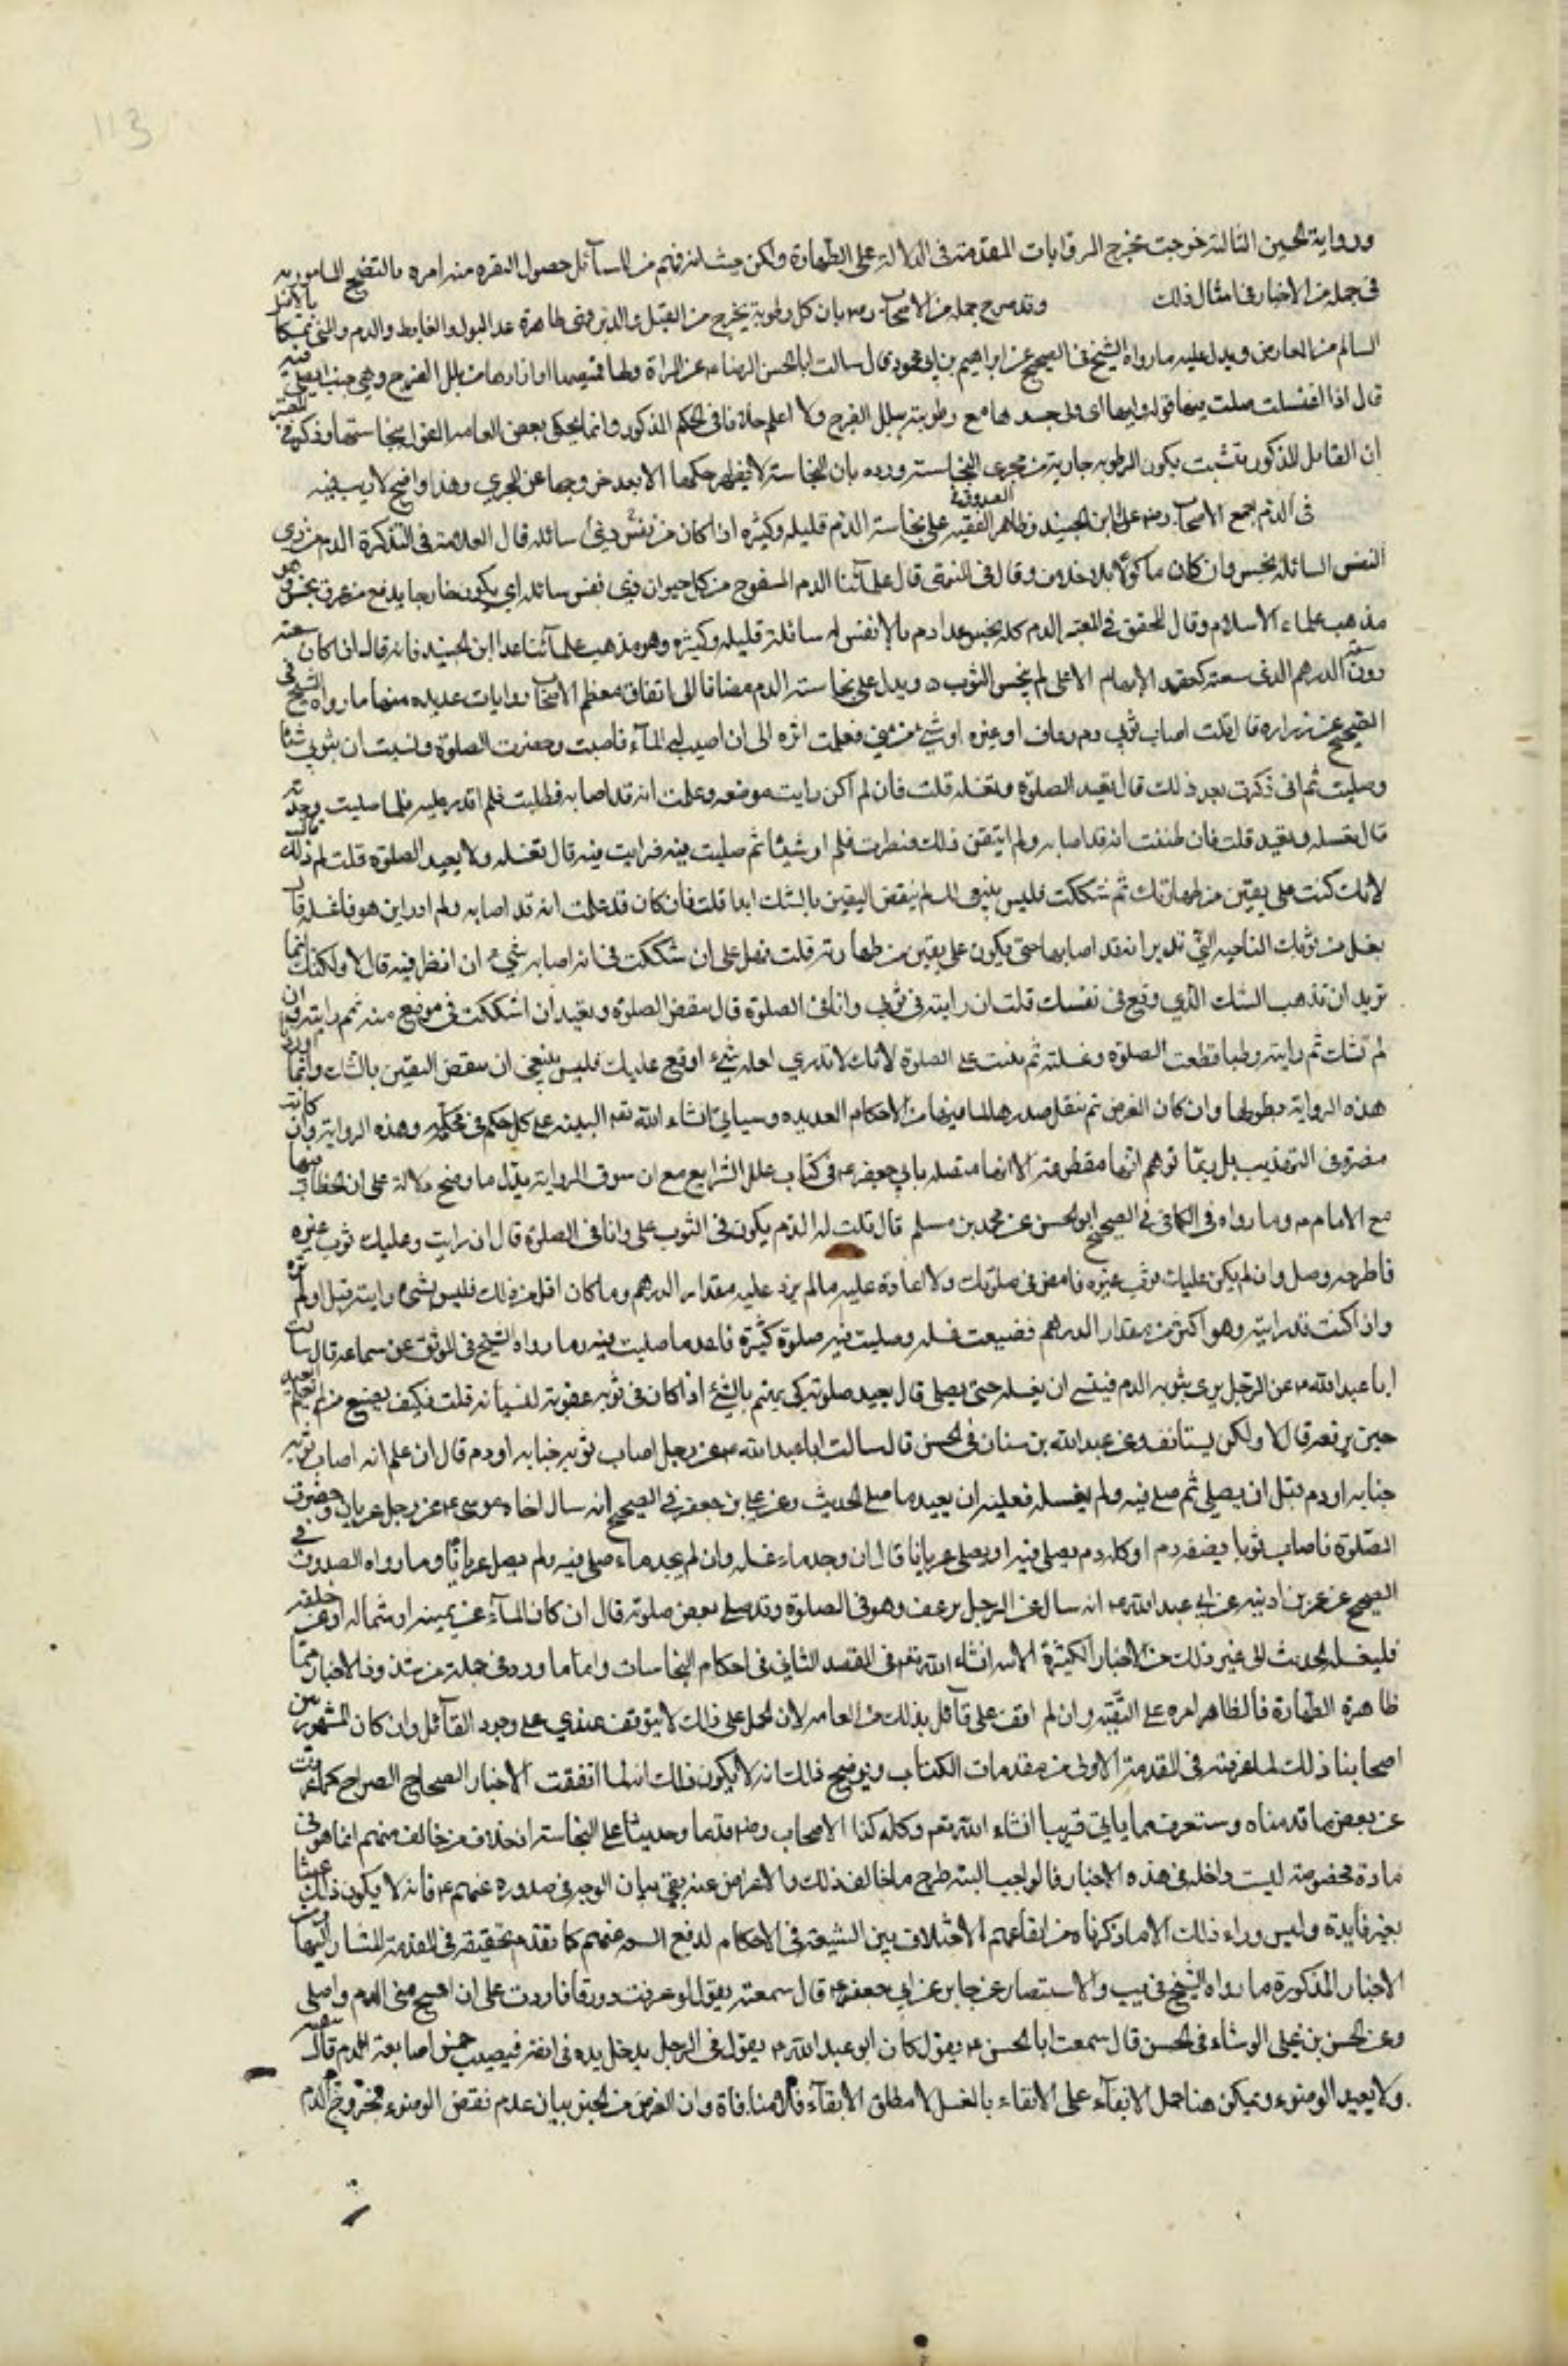 113
ورواية الحسين الثالثة خرجت مخرج الروايات المقدمة في الدلالة على الطهارة ولكن حيث انه فهم من السائل حصول النفره منه امره بالنضح المامور به
في جمله من الاخبار في امثال ذلك وقد صرح جمله من الاصحاب رضم بان كل رطوبة تخرج من القبل والدبر فهي طاهرة عدا البول والغايط والدم والمني تمسكا بالاصل
السالم من المعارض ويدل عليه ما رواه الشيخ في الصحيح عن ابراهيم بن ابي محمود قال سالت ابا الحسن الرضا ع عن المراة وليها قميصها او ازارها من بلل الفرج وهي جنب ايصلي فيه
قال اذا اغتسلت صلت فيهما قوله وليها اى ولى جسدها مع رطوبته ببلل الفرج ولا اعلم خلافا في الحكم المذكور وانما يحكى بعض العامه القول بنجاستها وذكر في المعتبر
ان القايل المذكور يتشبث بكون الرطوبه جارية من مجرى النجاسة ورده بان النجاسة لا يظهر حكمها الا بعد خروجها عن المجرى وهذا واضح لا ريب فيه
في الدم اجمع الاصحاب رضم عدا ابن الجنيد وظاهر الصدوق في الفقيه على نجاسة الدم قليله وكثيره اذا كان من نفس ذي سائله قال العلامة في التذكرة الدم من ذي
النفس السائلة نجس وان كان ماكولا بلا خلاف وقال في المنتهى قال علمآئنا الدم المسفوح من كل حيوان ذي نفس سائله اي يكون خارجا بدفع من عرق نجس وهو
مذهب علماء الاسلام وقال المحقق في المعتبر الدم كله نجس عدا دم ما لا نفس له سائلة قليله وكثيره وهو مذهب علمآئنا عدا ابن الجنيد فانه قال اذا كان سعته
دون سعة الدرهم الذى سعته كعقد الابهام الاعلى لم ينجس الثوب ويدل على نجاسة الدم مضافا الى اتفاق معظم الاصحاب روايات عديده منها ما رواه الشيخ في
الصحيح عن زراره قال قلت اصاب ثوبي دم رعاف او غيره او شيء من مني فعلمت اثره الى ان اصيب له المآء فاصبت وحضرت الصلوة ونسيت ان بثوبي شيئا
وصليت ثم انى ذكرت بعد ذلك قال تعيد الصلوة وتغسله قلت فان لم اكن رايت موضعه وعلمت انه قد اصابه فطلبته فلم اقدر عليه فلما صليت وجدته
قال تغسله وتعيد قلت فان ظننت انه قد اصابه ولم اتيقن ذلك فنظرت فلم ار شيئا ثم صليت فيه فرايت فيه قال تغسله ولا تعيد الصلوة قلت لم ذلك قال
لانك كنت على يقين من طهارتك ثم شككت فليس ينبغي لك ان تنقض اليقين بالشك ابدا قلت فان كان قد علمت انه قد اصابه ولم ادر اين هو فاغسله قال
تغسل من ثوبك الناحية التي ترى انه قد اصابها حتى يكون على يقين من طهارته قلت فهل على ان شككت في انه اصابه شيء ان انظر فيه قال لا ولكنك انما
تريد ان تذهب الشك الذي وقع في نفسك قلت ان رايته في ثوبي وانا في الصلوة قال تنقض الصلوة وتعيد ان اشككت في موضع منه ثم رايته وان
لم تشك ثم رايته رطبا قطعت الصلوة وغسلته ثم بنيت على الصلوة لانك لا تدري لعله شيء اوقع عليك فليس ينبغي ان تنقض اليقين بالشك وانما اوردنا
هذه الرواية بطولها وان كان الغرض تم بنقل صدرها لما فيها من الاحكام العديده وسياتي انشاء الله تعم البينه على كل حكم في محله وهذه الرواية وان كانت
مضمره في التهذيب بل ربما توهم انها مقطوعة الا انها متصله بابي جعفر ع في كتاب علل الشرايع مع ان سوق الرواية يدل باوضح دلالة على ان الخطاب فيها
مع الامام ع وما رواه في الكافي في الصحيح ابو الحسن عن محمد بن مسلم قال قلت له الدم يكون في الثوب على وانا في الصلوة قال ان رايت وعليك ثوب غيره
فاطرحه وصل وان لم يكن عليك ثوب غيره فامض في صلوتك ولا اعادة عليك ما لم يزد على مقدار الدرهم وما كان اقل من ذلك فليس بشيء رايته قبل او لم تره
واذا كنت قد رايته وهو اكثر من مقدار الدرهم فضيعت غسله وصليت فيه صلوة كثيرة فاعد ما صليت فيه وما رواه الشيخ في الموثق عن سماعه قال سالت
ابا عبد الله ع عن الرجل يرى بثوبه الدم فينسى ان يغسله حتى يصلى قال يعيد صلوته كي يهتم بالشيء اذا كان في ثوبه عقوبة لنسيانه قلت فكيف يصنع من لم يعلم ايعيد
حين يرفعه قال لا ولكن يستانف وعن عبدالله بن سنان في الحسن قال سالت ابا عبدالله ع عن رجل اصاب ثوبه جنابه او دم قال ان علم انه اصاب ثوبه
جنابه او دم قبل ان يصلي ثم صلى فيه ولم يغسله فعليه ان يعيد ما صلى الحديث وعن علي بن جعفر في الصحيح انه سال اخاه موسى ع عن رجل عريان وحضرت
الصلوة فاصاب ثوبا نصفه دم او كله دم يصلي فيه او يصلى عريانا قال ان وجد ماء غسله وان لم يجد ماء صلى فيه ولم يصل عريانا وما رواه الصدوق في
الصحيح عن عمر بن اذينه عن ابي عبد الله ع انه سال عن الرجل يرعف وهو في الصلوة وقد صلى بعض صلوته قال ان كان المآء عن يمينه او شماله او عن خلفه
فليغسله الحديث الى غير ذلك من الاخبار الكثيرة الاتيه انشاء الله تعم في المقصد الثاني في احكام النجاسات واما ما ورد في جملة من شذوذ الاخبار مما
ظاهره الطهارة فالظاهر امره على التقيه وان لم اقف على قآئل بذلك من العامه لان الحمل على ذلك لا يتوقف عندي على وجود القآئل وان كان المشهور بين
اصحابنا ذلك لما عرفته في المقدمة الاولى من مقدمات الكتاب ويوضح ذلك انه لا يكون ذلك انه لما اتفقت الاخبار الصحاح الصراح كما عرفت
عن بعض ما قدمناه وستعرف مما ياتي قريبا انشاء الله تعم وكله كذا الاصحاب رضم قديما وحديثا على النجاسة اذ خلاف من خالف منهم انما هو في
مادة مخصوصة ليست داخله في هذه الاخبار فالواجب البته طرح ما خالف ذلك والاعراض عنه بقي بيان الوجه في صدوره عنهم ع فانه لا يكون ذلك عبثا
بغير فايدة وليس وراء ذلك الا ما ذكرناه من ايقاعهم الاختلاف بين الشيعة في الاحكام لدفع السوء عنهم كما تقدم تحقيقه في المقدمة المشار اليها ومن
الاخبار المذكورة ما رواه الشيخ في يب والاستبصار عن جابر عن ابي جعفر ع قال سمعته يقول لو رعفت دورقا ما زدت على ان امسح مني الدم واصلى
وعن الحسن بن علي الوشاء في الحسن قال سمعت ابا الحسن ع يقول كان ابو عبد الله ع يقول في الرجل يدخل يده في انفه فيصيب خمس اصابعه الدم قال ينقيه
ولا يعيد الوضوء ويمكن هنا حمل الانقآء على الانقاء بالغسل لا مطلق الانقآء فلا منافاة وان الغرض من الخبر بيان عدم نقض الوضوء بخروج الدم